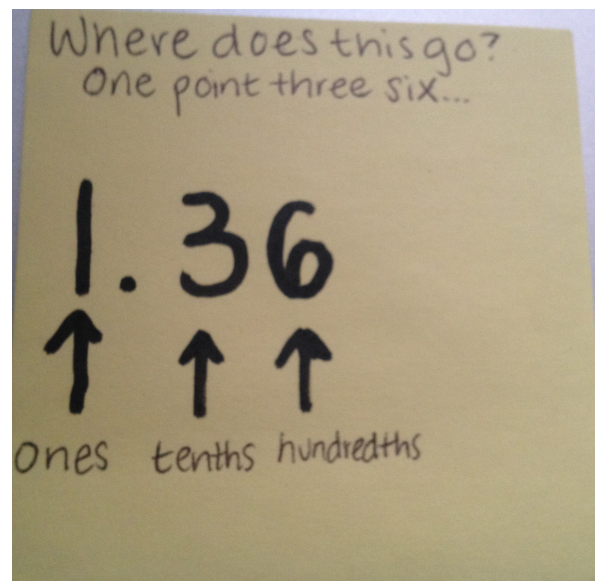 Where does this go?
One point three six...
1.36
ones tenths hundredths